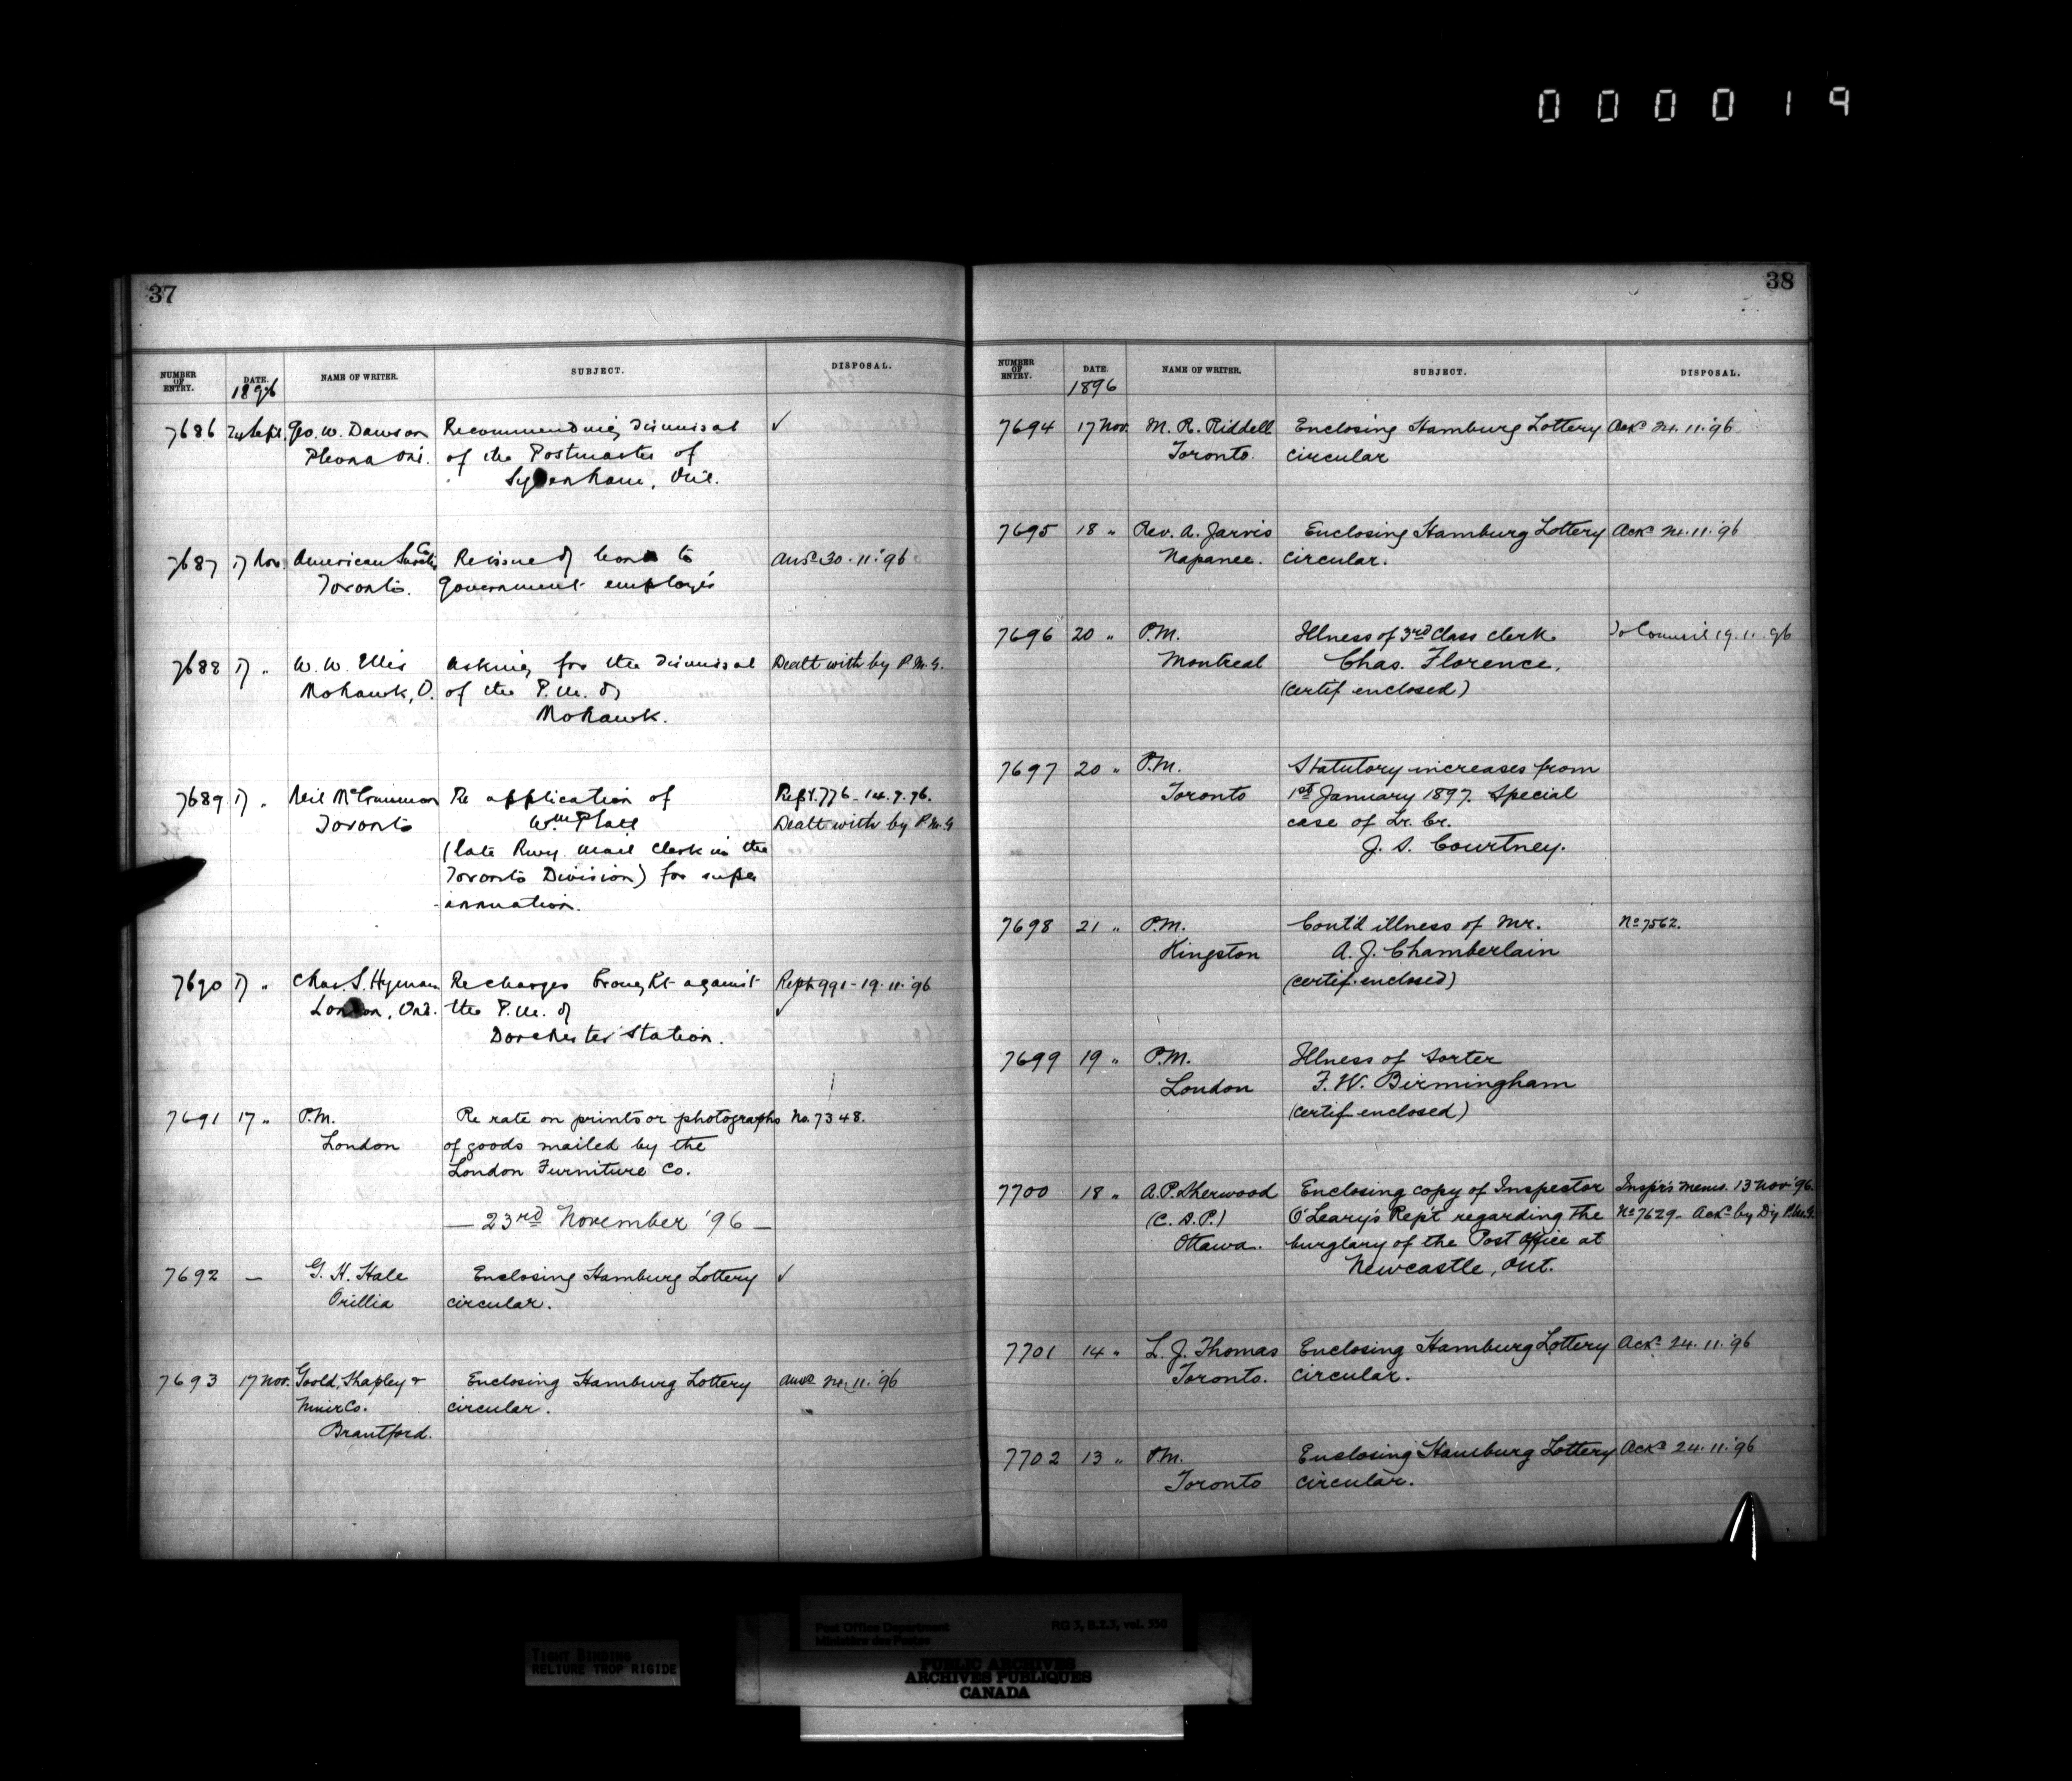 000019
37
NUMBER OF ENTRY. DATE. 1896 NAME OF WRITER. SUBJECT. DISPOSAL.
7686 24 Sept. Geo. W. Dawson Recommending dismissal ✓
Plevna Ont. of the Postmaster of
Sydenham, Ont.
7687 17 Nov. American Surety Co Re issue of bonds to Ansd 30.11.'96
Toronto. Government employés
7688 17 " W. W. Ellis Asking for the dismissal Dealt with by P.M.G.
Mohawk, O. of the P.M. of
Mohawk.
7689 17 " Neil McCrimmon Re application of Rept. 776 - 14.7.96.
Toronto Wm Platt Dealt with by P.M.G
(late Rwy. Mail Clerk in the
Toronto Division) for super
-annuation.
7690 17 " Chas. S. Hyman Re charges brought against Rept 991 - 19.11.'96
London, Ont. the P.M. of ✓
Dorchester Station.
7691 17 " P.M. Re rate on prints or photographs No. 7348.
London of goods mailed by the
London Furniture Co.
— 23rd November '96 —
7692 — G. H. Hale Enclosing Hamburg Lottery ✓
Orillia circular.
7693 17 Nov. Goold, Shapley & Enclosing Hamburg Lottery Ansd 24.11.'96
Muir Co. circular.
Brantford.
38
NUMBER OF ENTRY. DATE. 1896 NAME OF WRITER. SUBJECT. DISPOSAL.
7694 17 Nov. M. R. Riddell Enclosing Hamburg Lottery Ackd 24.11.'96
Toronto. circular
7695 18 " Rev. A. Jarvis Enclosing Hamburg Lottery Ackd 24.11.'96
Napanee. circular.
7696 20 " P.M. Illness of 3rd Class Clerk To Council 19.11.96
Montreal Chas. Florence,
(certif. enclosed)
7697 20 " P.M. Statutory increases from
Toronto 1st January 1897. Special
case of Lr. Cr.
J. S. Courtney.
7698 21 " P.M. Cont'd illness of Mr. No 7562.
Kingston A. J. Chamberlain
(certif. enclosed)
7699 19 " P.M. Illness of Sorter
London F. W. Birmingham
(certif. enclosed)
7700 18 " A. P. Sherwood Enclosing copy of Inspector Inspr's memo. 13 Nov '96.
(C. D. P.) O'Leary's Rep't regarding the No 7629. Ackd by Dy P.M.G.
Ottawa. burglary of the Post Office at
Newcastle, Ont.
7701 14 " L. J. Thomas Enclosing Hamburg Lottery Ackd 24.11.'96
Toronto. circular.
7702 13 " P.M. Enclosing Hamburg Lottery Ackd 24.11.'96
Toronto circular.
Post Office Department RG 3, B.I.3, vol. 550
Ministère des Postes
TIGHT BINDING
RELIURE TROP RIGIDE
PUBLIC ARCHIVES
ARCHIVES PUBLIQUES
CANADA